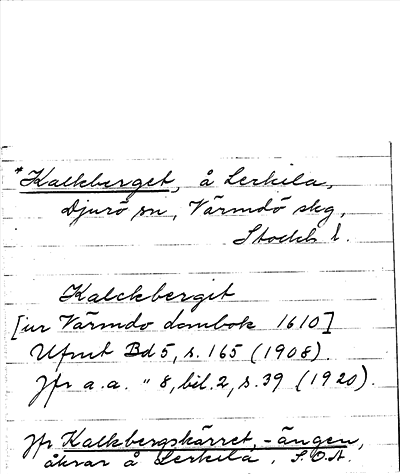 *Kalkberget, å Lerkila,
Djurö sn, Värmdö skg,
Stockh l.
Kalckbergit
[ur Värmdo dombok 1610]
Ufmt Bd 5, s. 165 (1908).
Jfr a.a. " 8, bil. 2, s. 39 (1920).
Jfr Kalkbergskärret, -ängen,
åkrar å Lerkila. S.O.A.